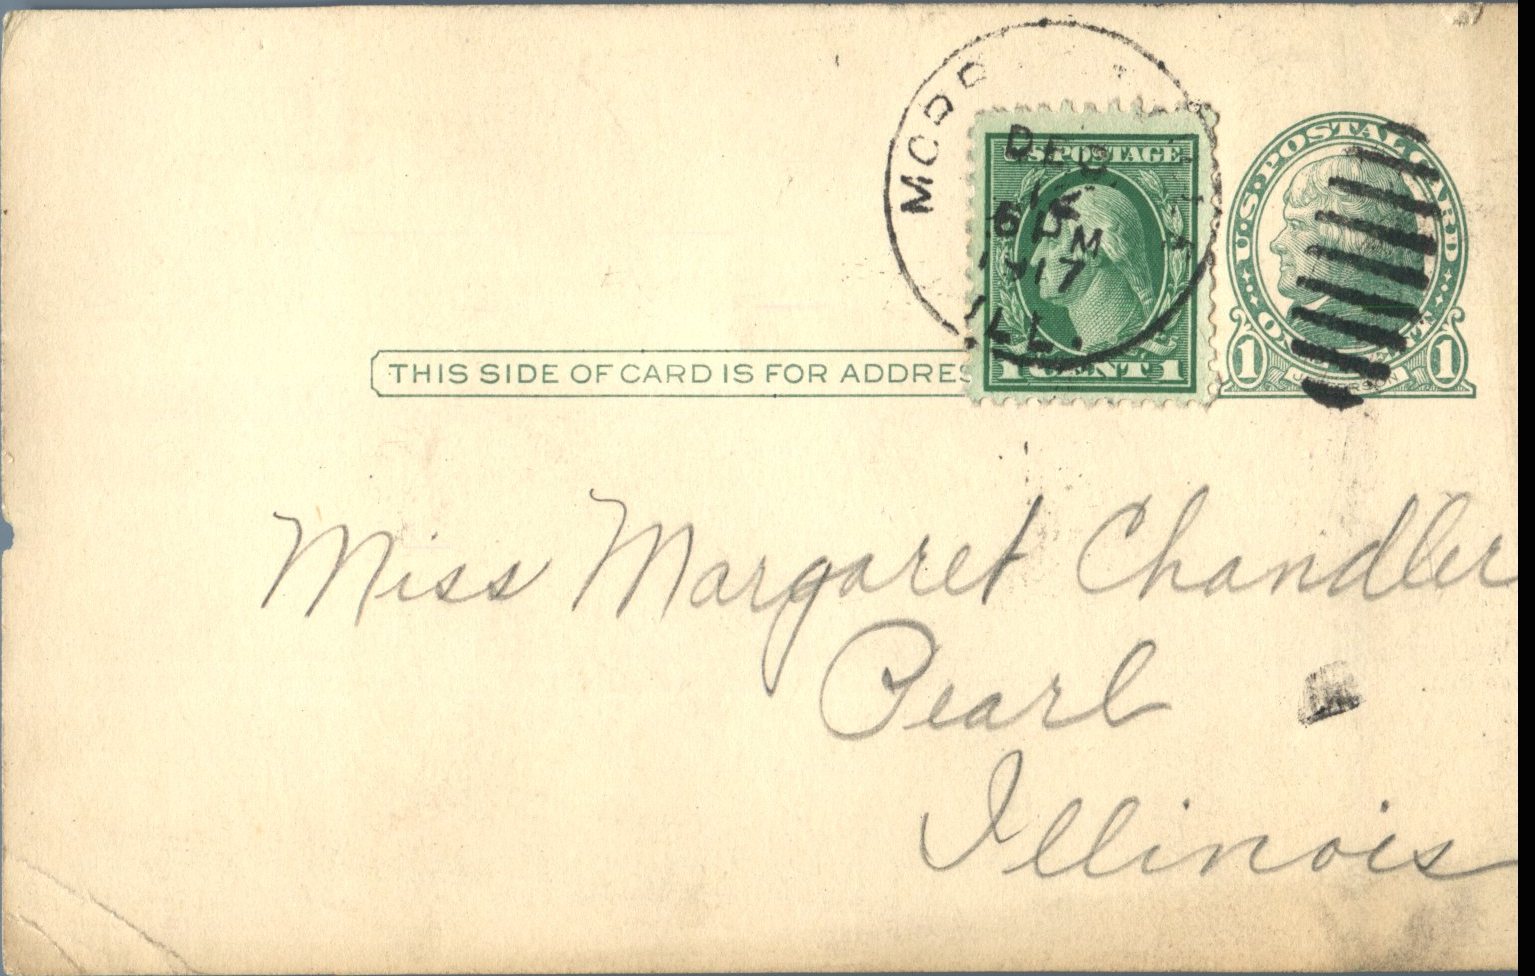 DEC
6 PM
1917
ILL.
U.S. POSTAGE
1 CENT 1
U.S. POSTAL CARD
1 1
THIS SIDE OF CARD IS FOR ADDRES
Miss Margaret Chandler
Pearl
Illinois